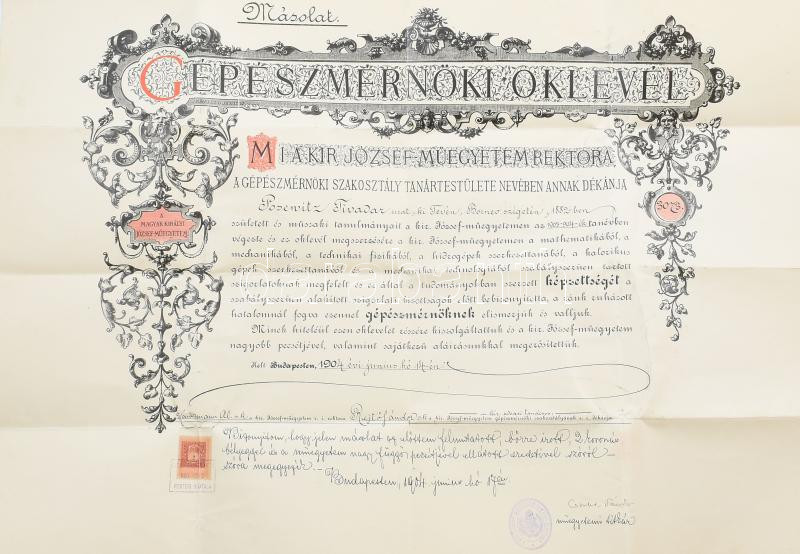 Másolat.
GÉPÉSZMÉRNÖKI OKLEVÉL
MI A KIR. JÓZSEF-MŰEGYETEM REKTORA
A GÉPÉSZMÉRNÖKI SZAKOSZTÁLY TANÁRTESTÜLETE NEVÉBEN ANNAK DÉKÁNJA
Posewitz Tivadar urat, ki Borneo szigetén, 1882-ben
született és műszaki tanulmányait a kir. József-műegyetemen az 1903-904-ik tanévben
végezte és ez oklevél megszerzésére a kir. József-műegyetemen a mathematikából, a
mechanikából, a technikai fizikából, a hidrogépek szerkesztéstanából, a kalorikus
gépek szerkesztéstanából és a mechanikai technologiából szabályszerűen tartott
szigorlatoknak megfelelt és ez által e tudományokban szerzett képzettségét a
szabályszerűen alakított szigorlati bizottságok előtt bebizonyította, a ránk ruházott
hatalomnál fogva ezennel gépészmérnöknek elismerjük és valljuk.
Minek hiteléül ezen oklevelet részére kiszolgáltattuk és a kir. József-műegyetem
nagyobb pecsétjével, valamint sajátkezű aláírásunkkal megerősítettük.
Kelt Budapesten, 1904 évi junius hó 14-én
A
MAGYAR KIRÁLYI
JÓZSEF-MŰEGYETEM
3073.
Rejtő Sándor
Bizonyítom, hogy jelen másolat az előttem felmutatott, bőrre írott, 2 koronás
bélyeggel és a műegyetem nagy függő pecsétjével ellátott eredetivel szóról
szóra megegyezik. –
Budapesten, 1904 junius hó 17én
műegyetemi titkár